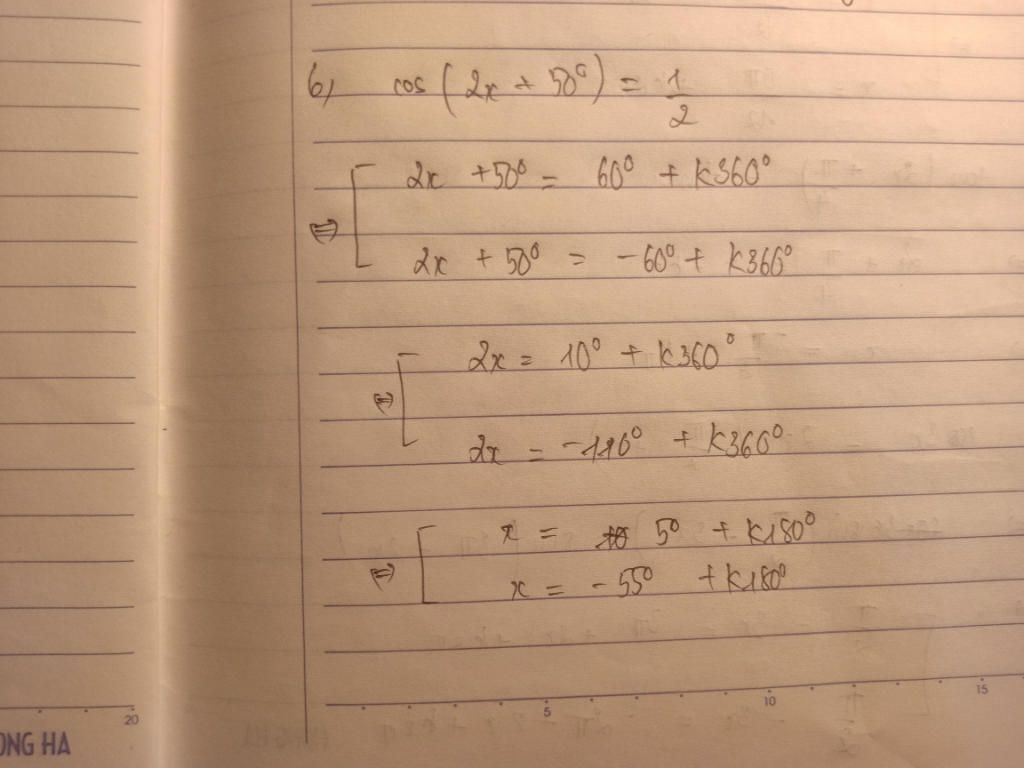 b) cos (2x + 50°) = 1/2
2x + 50° = 60° + k360°
⇔
2x + 50° = -60° + k360°
2x = 10° + k360°
⇔
2x = -110° + k360°
x = 5° + k180°
⇔
x = -55° + k180°
5 10 15
20
ONG HA